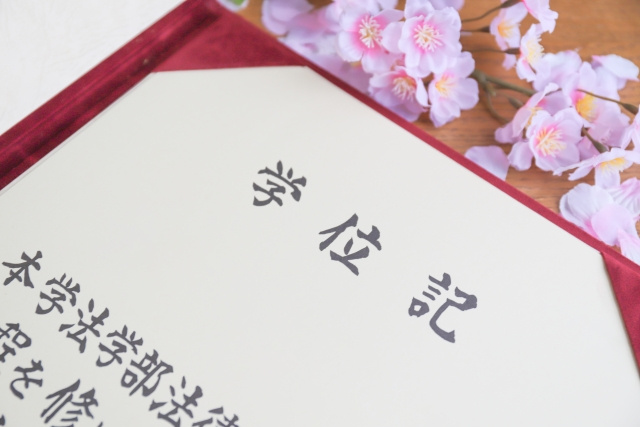 学位記
本学法学部法律
程を修